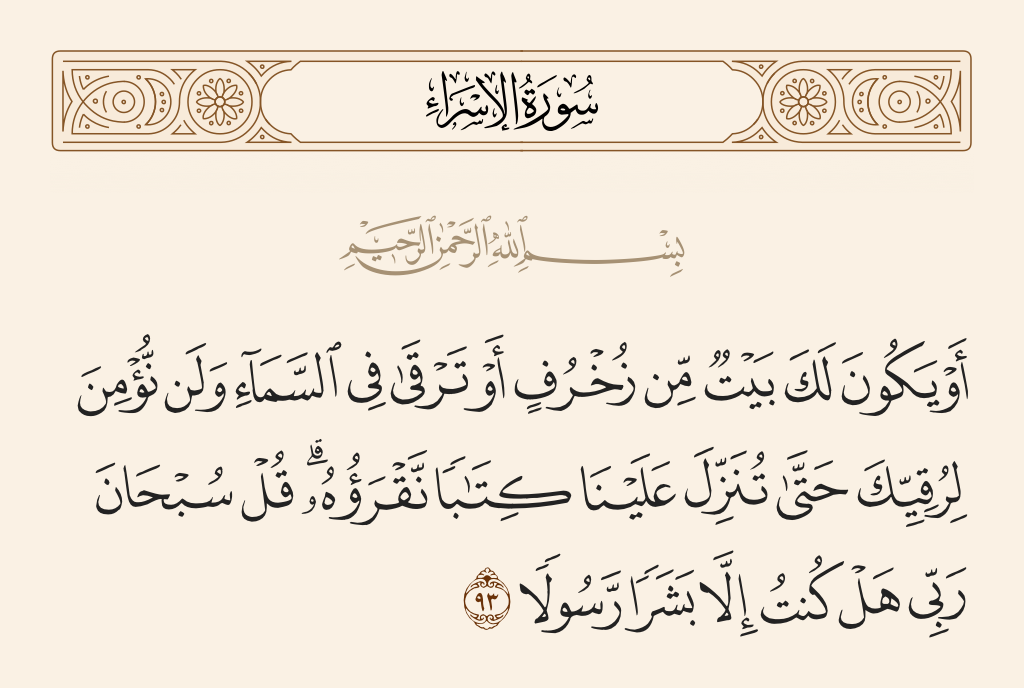 سُورَةُ الإِسْرَاءِ
بِسْمِ ٱللَّهِ ٱلرَّحْمَٰنِ ٱلرَّحِيمِ
أَوْ يَكُونَ لَكَ بَيْتٌ مِّن زُخْرُفٍ أَوْ تَرْقَىٰ فِى ٱلسَّمَآءِ وَلَن نُّؤْمِنَ
لِرُقِيِّكَ حَتَّىٰ تُنَزِّلَ عَلَيْنَا كِتَـٰبًا نَّقْرَؤُهُۥ ۗ قُلْ سُبْحَانَ
رَبِّى هَلْ كُنتُ إِلَّا بَشَرًا رَّسُولًا ٩٣